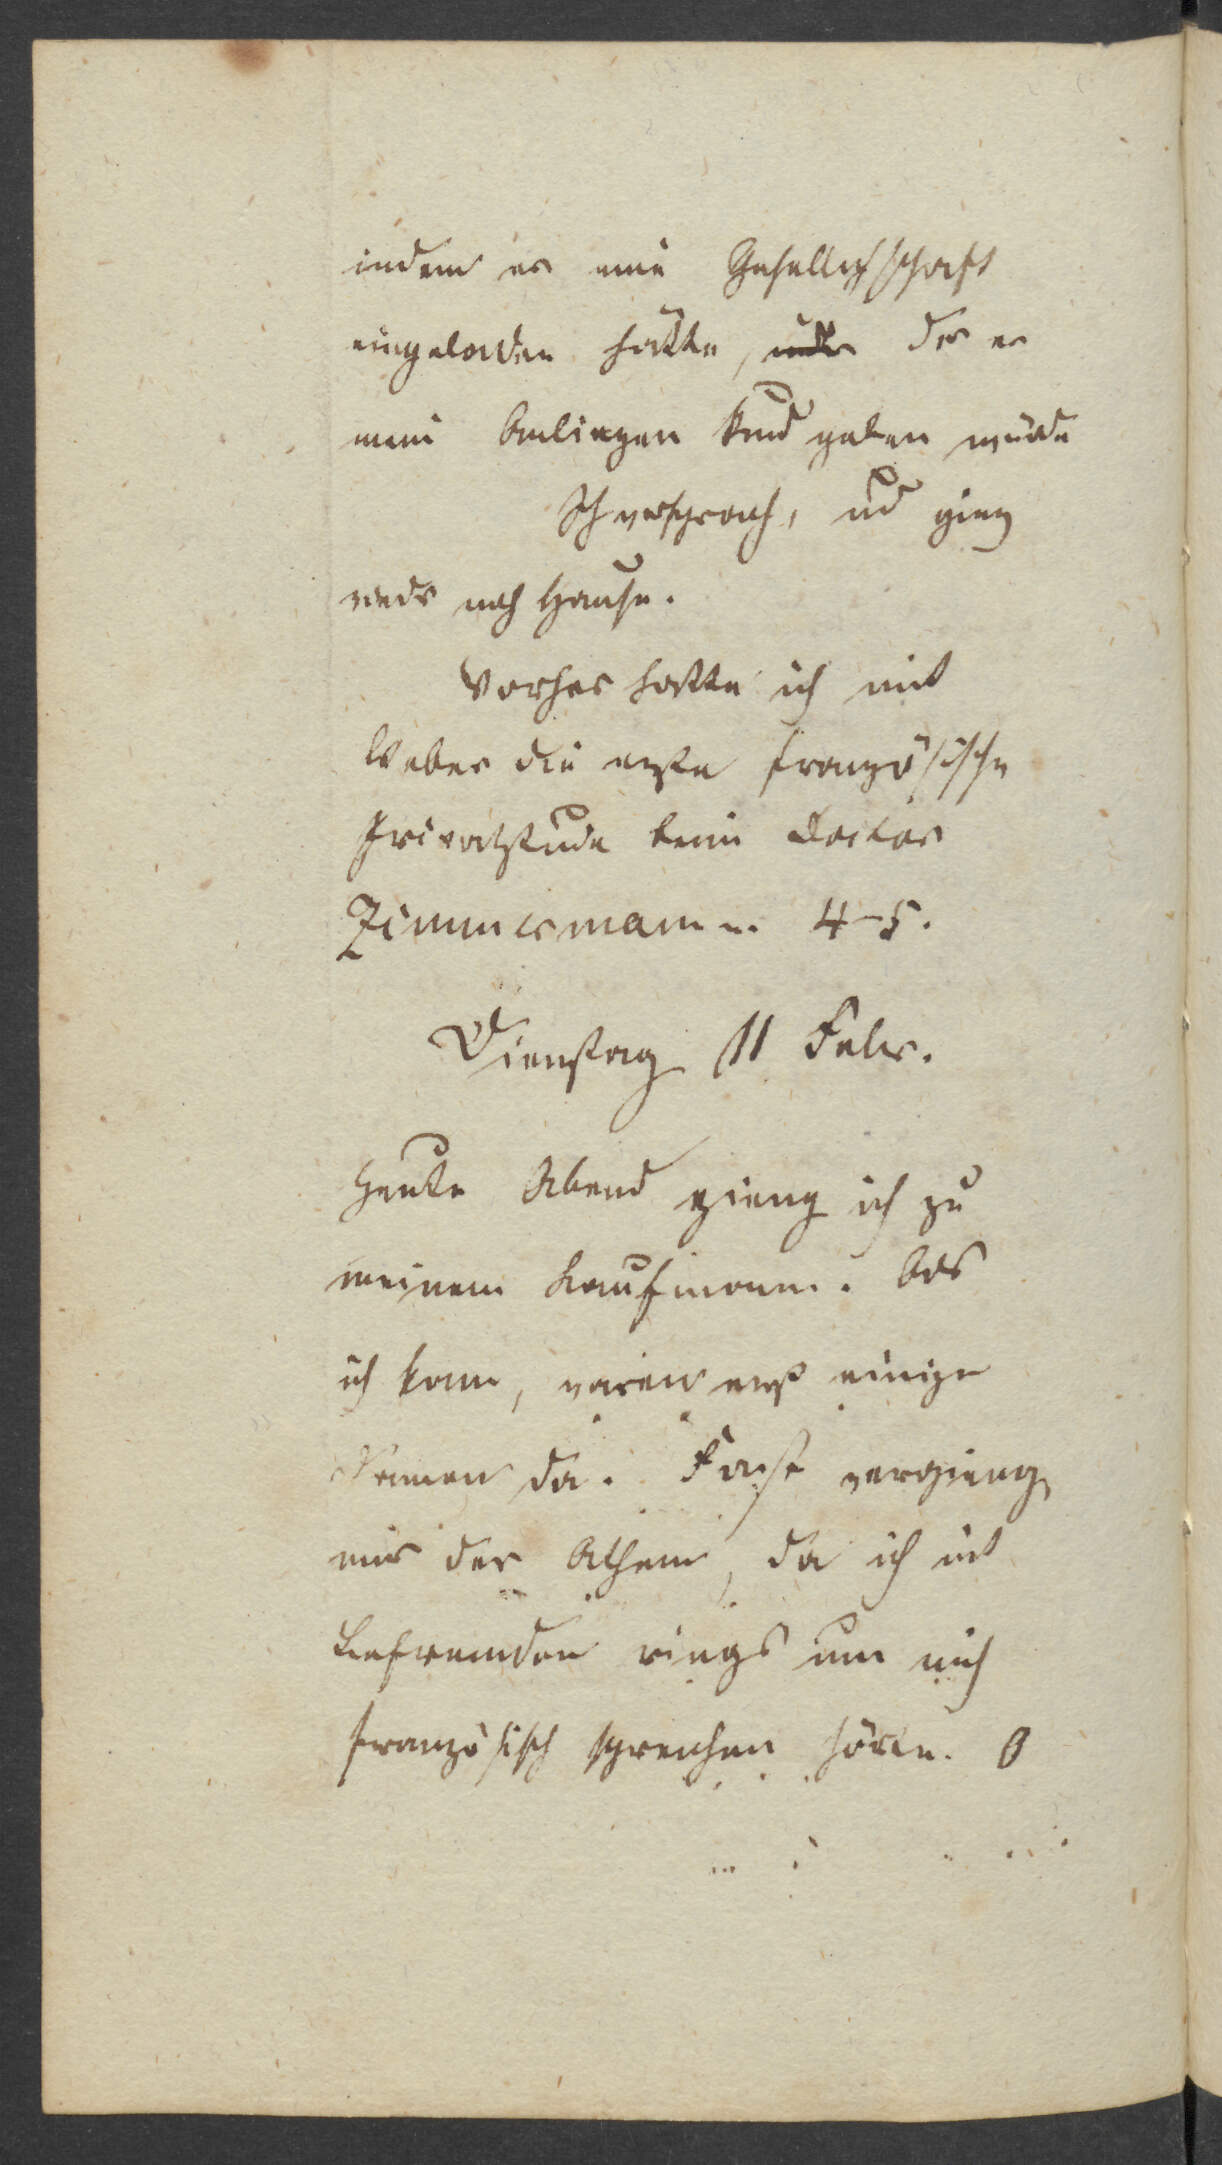 indem er eine Gesellschaft
eingeladen hätte, der er
mein Anliegen kund geben würde
Ich versprach, und ging
wieder nach Hause.
Vorher hatte ich mit
Weber die erste französische
Privatstunde beim Doctor
Zimmermann 4-5.
Dienstag 11 Febr.
Heute Abend gieng ich zu
meinem Kaufmann. Als
ich kam, waren erst einige
Damen da. Fast vergieng
mir der Athem, da ich mit
Befremden rings um mich
französisch sprechen hörte. O